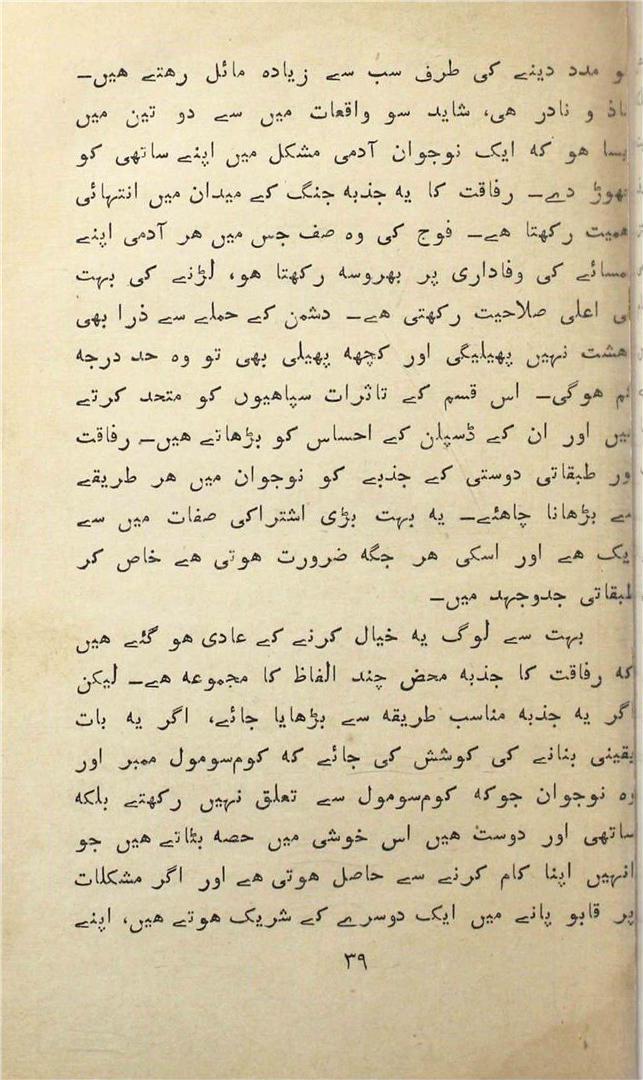 مدد دینے کی طرف سب سے زیادہ مائل رھتے ھیں۔
و نادر ھی، شاید سو واقعات میں سے دو تین میں
ھو کہ ایک نوجوان آدمی مشکل میں اپنے ساتھی کو
دے۔ رفاقت کا یہ جذبہ جنگ کے میدان میں انتہائی
رکھتا ھے۔ فوج کی وہ صف جس میں ھر آدمی اپنے
کی وفاداری پر بھروسہ رکھتا ھو، لڑنے کی بہت
اعلی صلاحیت رکھتی ھے۔ دشمن کے حملے سے ذرا بھی
نہیں پھیلیگی اور کچھہ پھیلی بھی تو وہ حد درجہ
ھوگی۔ اس قسم کے تاثرات سپاھیوں کو متحد کرتے
اور ان کے ڈسپلن کے احساس کو بڑھاتے ھیں۔ رفاقت
طبقاتی دوستی کے جذبے کو نوجوان میں ھر طریقے
بڑھانا چاھئے۔ یہ بہت بڑی اشتراکی صفات میں سے
ھے اور اسکی ھر جگہ ضرورت ھوتی ھے خاص کر
طبقاتی جدوجہد میں۔
بہت سے لوگ یہ خیال کرنے کے عادی ھو گئے ھیں
کہ رفاقت کا جذبہ محض چند الفاظ کا مجموعہ ھے۔ لیکن
اگر یہ جذبہ مناسب طریقہ سے بڑھایا جائے، اگر یہ بات
یقینی بنانے کی کوشش کی جائے کہ کوم‌سومول ممبر اور
وہ نوجوان جوکہ کوم‌سومول سے تعلق نہیں رکھتے بلکہ
ساتھی اور دوست ھیں اس خوشی میں حصہ بٹاتے ھیں جو
انہیں اپنا کام کرنے سے حاصل ھوتی ھے اور اگر مشکلات
پر قابو پانے میں ایک دوسرے کے شریک ھوتے ھیں، اپنے
۳۹